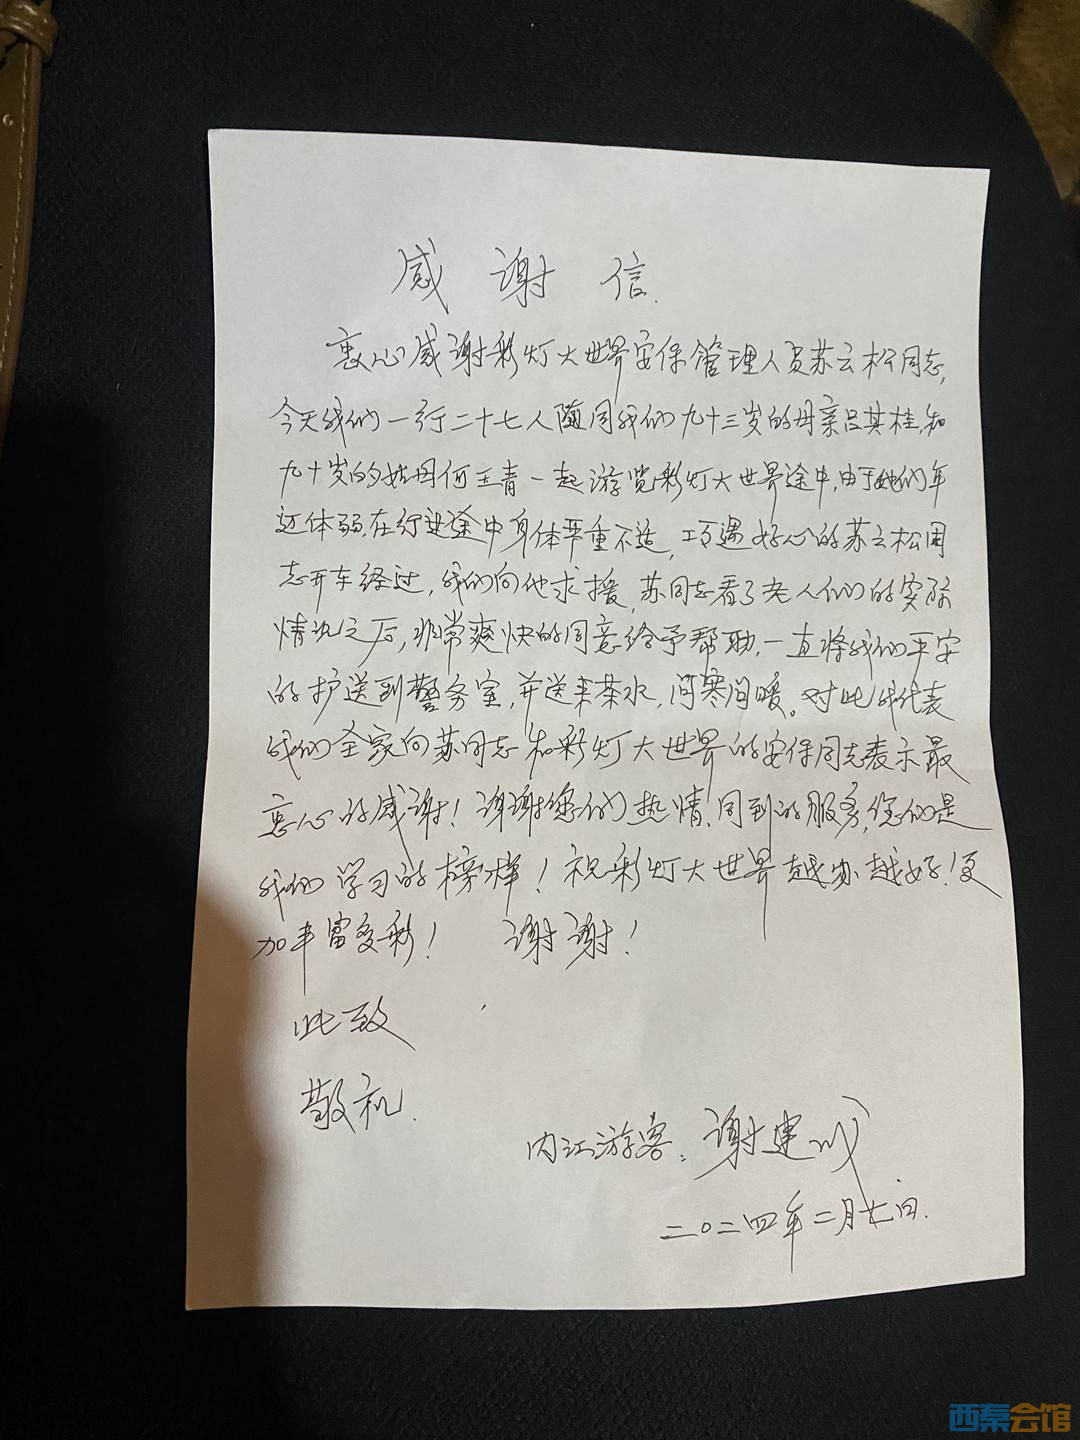 感谢信.
衷心感谢彩灯大世界安保管理人员苏云松同志,
今天我们一行二十七人随同我们九十三岁的母亲吕其桂,和
九十岁的姑母何玉青一起游览彩灯大世界途中,由于她们年
迈体弱,在行进途中身体严重不适,巧遇好心的苏云松同
志开车经过,我们向他求援,苏同志看了老人们的实际
情况之后,非常爽快的同意给予帮助,一直将我们平安
的护送到警务室,并送来茶水,问寒问暖。对此我代表
我们全家向苏同志和彩灯大世界的安保同志表示最
衷心的感谢!谢谢您们热情、周到的服务,您们是
我们学习的榜样!祝彩灯大世界越办越好!更
加丰富多彩! 谢谢!
此致
敬礼.
内江游客:谢建
二〇二四年二月七日.
西秦会馆